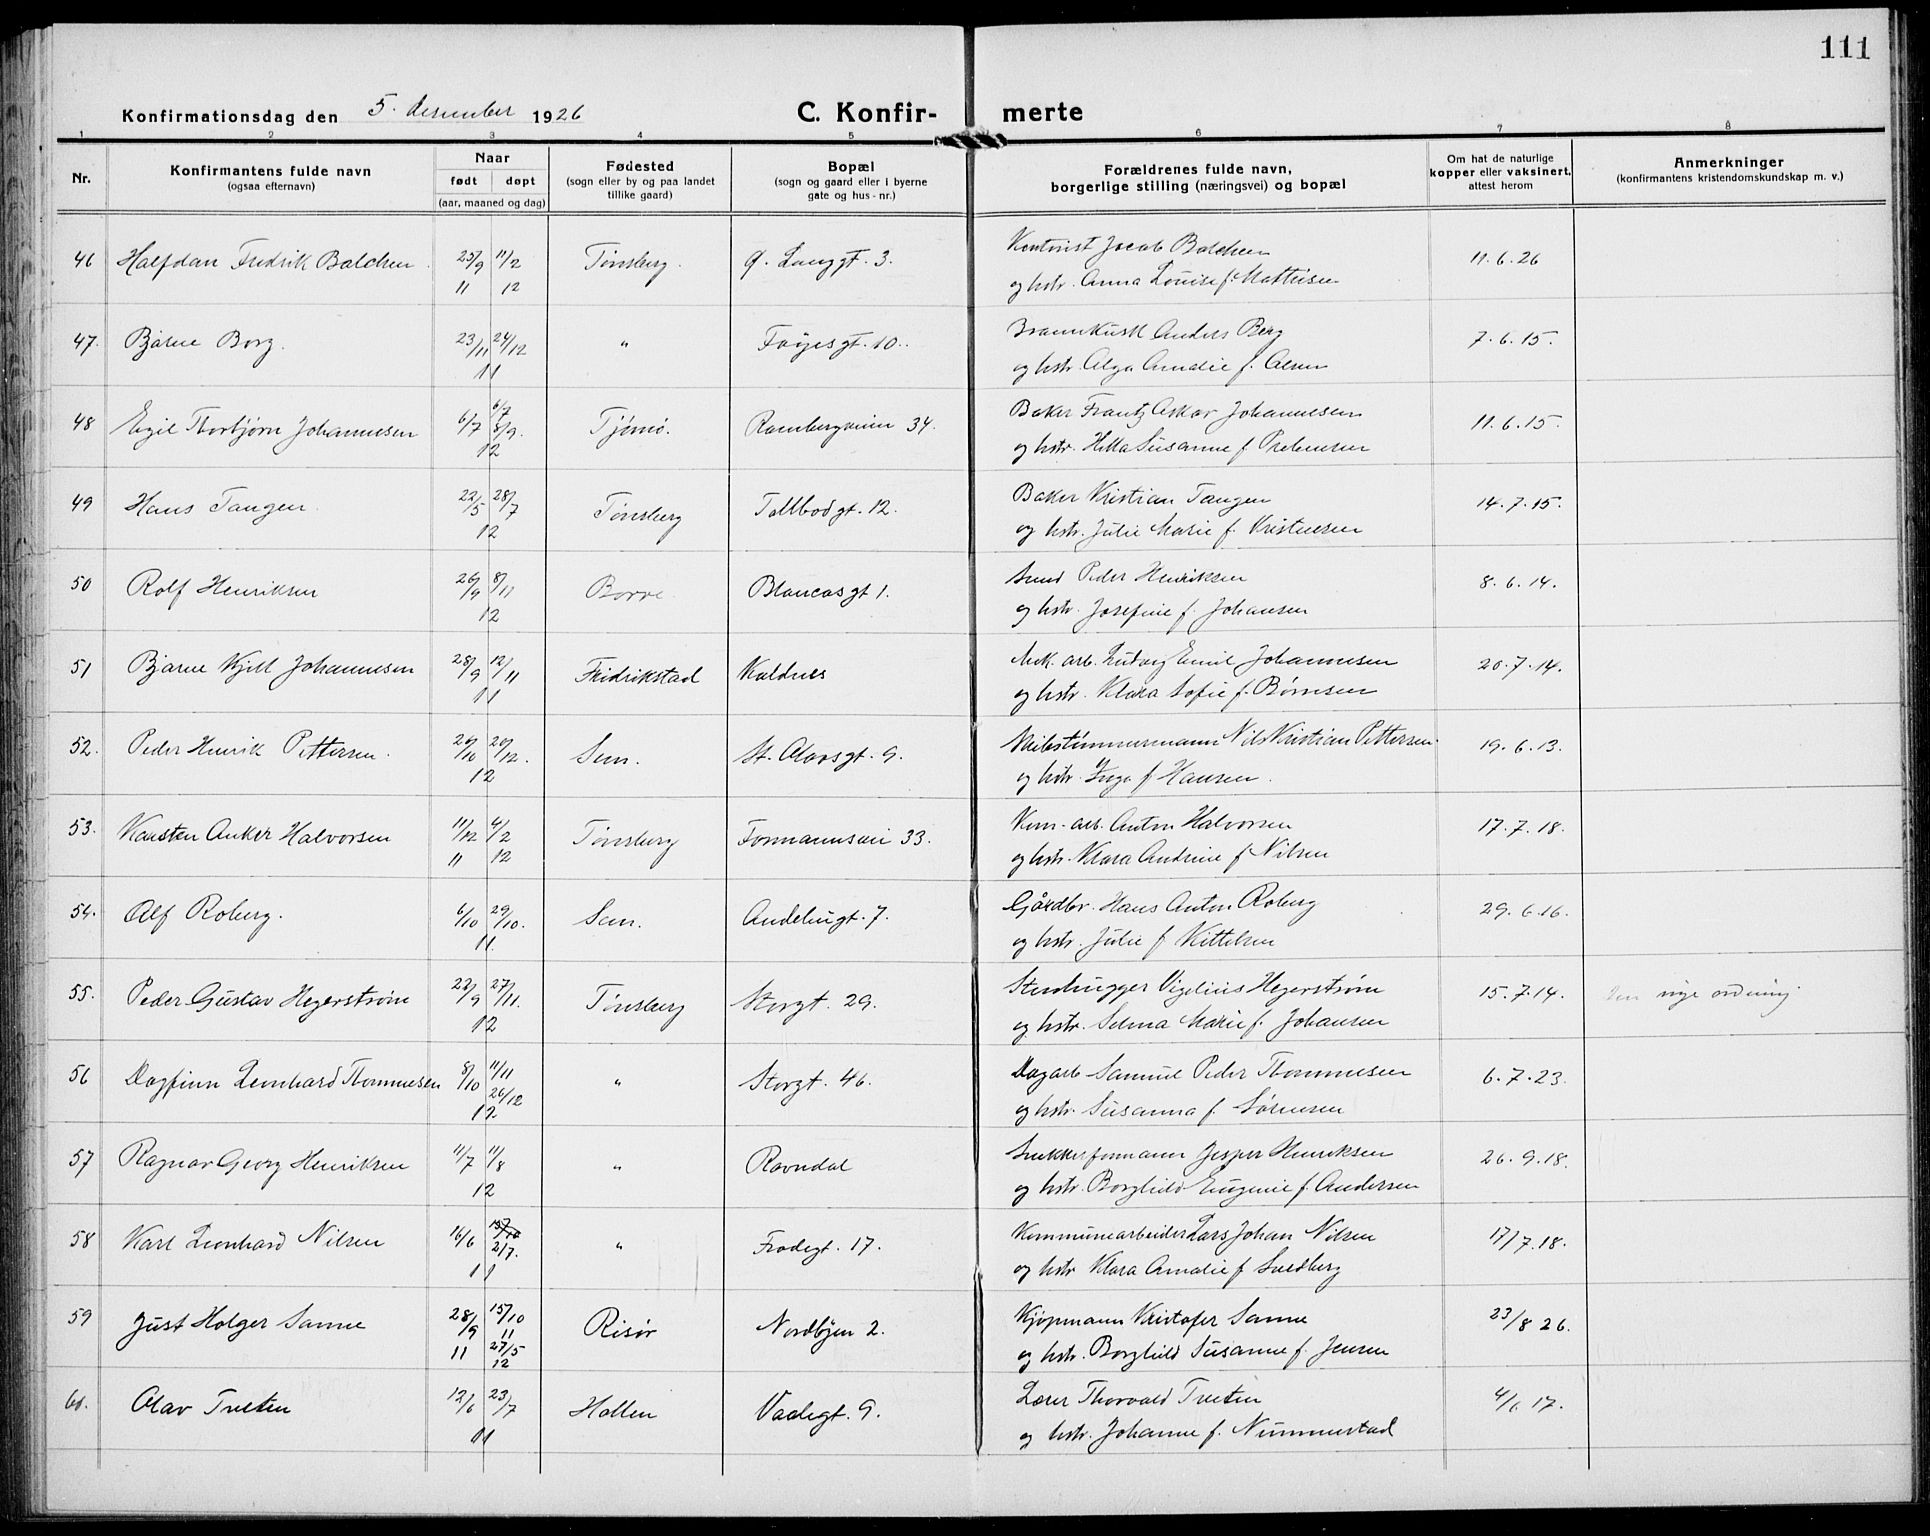 111
Konfirmationsdag den 5. desember 1926 C. Konfir- merte
1 2 3 4 5 6 7 8
Nr. Konfirmantens fulde navn (ogsaa efternavn) Naar født døpt (aar, maaned og dag) Fødested (sogn eller by og paa landet tillike gaard) Bopæl (sogn og gaard eller i byerne gate og hus-nr.) Forældrenes fulde navn, borgerlige stilling (næringsvei) og bopæl Om hat de naturlige kopper eller vaksinert, attest herom Anmerkninger (konfirmantens kristendomskundskap m. v.)
46 Halfdan Fredrik Balchen 25/9 11 11/2 12 Tønsberg. Langgt. 3. Kontorist Jacob Balchen 11.6.26
og hstr. Anna Louise f. Mathisen
47. Bjarne Borg. 23/11 24/12 11 " Føyesgt. 10. Anders Berg 7.6.15.
og hstr. Alga Amalie f. Olsen
48 Egil Thorbjørn Johannesen 6/7 6/7 8/9. 12 Tjømø. Rambergveien 34. Baker Frantz Oskar Johannesen 11.6.15.
og hstr. Susanne f. Prebensen
49 Hans Tangen. 22/5 28/7 12 Tønsberg Tollbodgt. 12. Baker Kristian Tangen 14.7.15.
og hstr. Julie Marie f. Kristensen
50 Rolf Henriksen 26/9 8/11 12 Borre. Blancasgt 1. Smed Peder Henriksen 8.6.14.
og hstr. Josefine f. Johansen
51 Bjarne Kjell Johannesen 28/9 12/11 11 Fredrikstad Kaldnes Mek. arb. Ludvig Emil Johannesen 20.7.14.
og hstr. Klara Sofie f. Børnsen
52. Peder Henrik Pettersen. 26/10 26/12. 12 Sem. St. Olavsgt. 9. Skibstømmermann Nils Kristian Pettersen. 19.6.13.
og hstr. Inga f Hansen.
53. Karsten Anker Halvorsen 11/12 11 4/2 12 Tønsberg Formannsvei 33. Kom-arb. Anton Halvorsen 17.7.18.
og hstr. Klara Andrine f Nilsen
54. Alf Roberg. 6/10 29/10. 11. Sem. Andebugt. 7. Gårdbr. Hans Anton Roberg 29.6.16.
og hstr. Julie f Kittelsen
55. Peder Gustav Hegerstrøm 22/9 27/11. 12 Tønsberg Storgt. 29. Stenhugger Vigelius Hegerstrøm 15.7.14. Den nye ordning.
og hstr. Selma Marie f. Johansen
56 Dagfinn Leonhard Thommesen 8/10 11/11 26/12 12. " Storgt. 46. Dagarb Samuel Peder Thommesen 6.7.23.
og hstr. Susanna f. Sørensen
57 Ragnar Georg Henriksen 11/7 11/8 12 " Ravndal Snekkerformann Jesper Henriksen 26.9.18.
og hstr. Borghild Eugenie f. Andersen
58 Karl Leonhard Nilsen 16/6 15/10 2/7. 11 " Frodegt. 17. Kommunearbeider Lars Johan Nilsen 17/7.18.
og hstr Klara Amalie f Svedberg
59 Just Holger Sanne 28/9 11 15/10 11 27/5 12 Risør Nordbyen 2. Kjøpmann Kristofer Sanne 23/8 26.
og hstr. Borghild Susanne f. Jensen
60. Olav Tveten 12/6 23/7 11 Hollen Vaalegt. 9. Lærer Thorvald Tveten 4/6 17.
og hstr. Johanne f. Nummestad